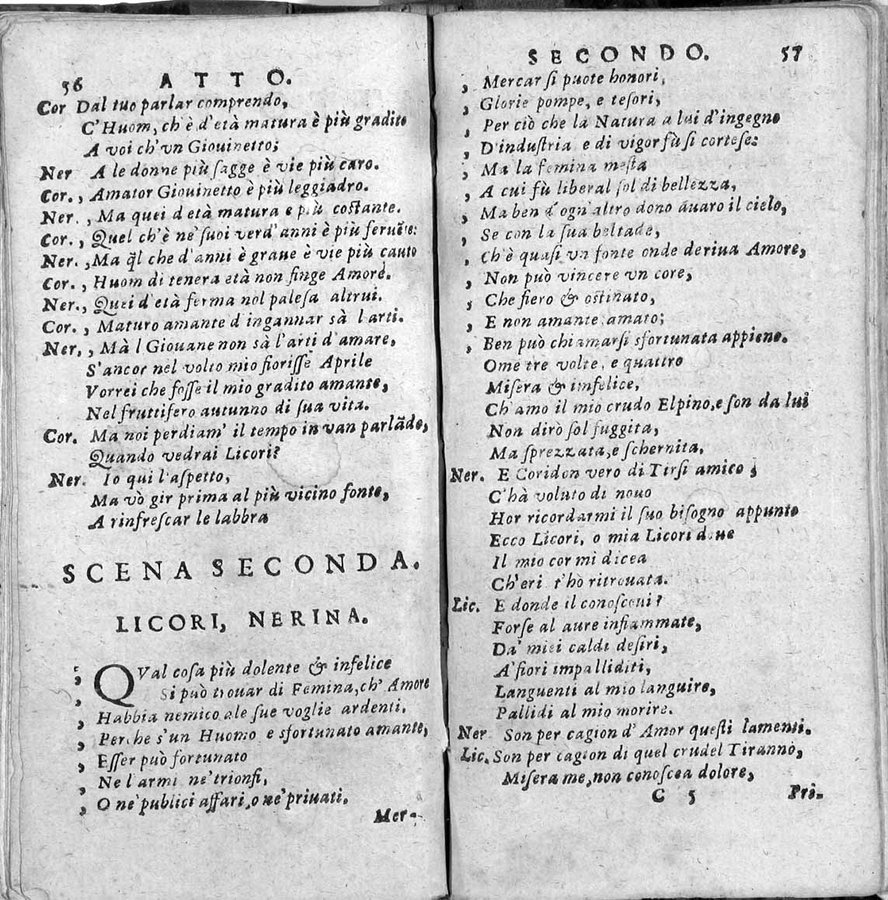 56 ATTO.
Cor Dal tuo parlar comprendo,
C'Huom, ch'è d'età matura è più gradito
A voi ch'vn Giouinetto;
Ner A le donne più sagge è vie più caro.
Cor. , Amator Giouinetto è più leggiadro.
Ner. , Ma quei d età matura e più costante.
Cor. , Quel ch'è ne' suoi verd' anni è più feruēte:
Ner. , Ma q̃l che d'anni è graue è vie più cauto
Cor. , Huom di tenera età non finge Amore.
Ner. , Quei d'età ferma nol palesa altrui.
Cor. , Maturo amante d ingannar sà l arti.
Ner. , Mà l Giouane non sà l'arti d'amare,
S'ancor nel volto mio fiorisse Aprile
Vorrei che fosse il mio gradito amante,
Nel fruttifero autunno di sua vita.
Cor. Ma noi perdiam' il tempo in van parlādo,
Quando vedrai Licori?
Ner. Io qui l'aspetto,
Ma vò gir prima al più vicino fonte,
A rinfrescar le labbra
SCENA SECONDA.
LICORI, NERINA.
, QVal cosa più dolente & infelice
, Si può trouar di Femina, ch' Amore
, Habbia nemico ale sue voglie ardenti.
, Perche s'un Huomo e sfortunato amante,
, Esser può fortunato
, Ne l armi ne' trionfi,
, O ne' publici affari, o ne' priuati.
Mer-
SECONDO. 57
, Mercar si puote honori,
, Glorie pompe, e tesori,
, Per ciò che la Natura a lui d'ingegno
, D'industria e di vigor fù sì cortese:
, Ma la femina mesta
, A cui fù liberal sol di bellezza,
, Ma ben d'ogn'altro dono auaro il cielo,
, Se con la sua beltade,
, Ch'è quasi vn fonte onde deriua Amore,
, Non può vincere vn core,
, Che fiero & ostinato,
, E non amante amato;
, Ben può chiamarsi sfortunata appieno.
Ome tre volte, e quattro
Misera & infelice,
Ch'amo il mio crudo Elpino, e son da lui
Non dirò sol fuggita,
Ma sprezzata, e schernita,
Ner. E Coridon vero di Tirsi amico ;
C'hà voluto di nouo
Hor ricordarmi il suo bisogno appunto
Ecco Licori, o mia Licori doue
Il mio cor mi dicea
Ch'eri t'hò ritrouata.
Lic. E donde il conosceui?
Forse al aure infiammate,
Da' miei caldi desiri,
A' fiori impalliditi,
Languenti al mio languire,
Pallidi al mio morire.
Ner Son per cagion d' Amor questi lamenti.
Lic. Son per cagion di quel crudel Tiranno,
Misera me, non conoscea dolore,
C 5 Pri-